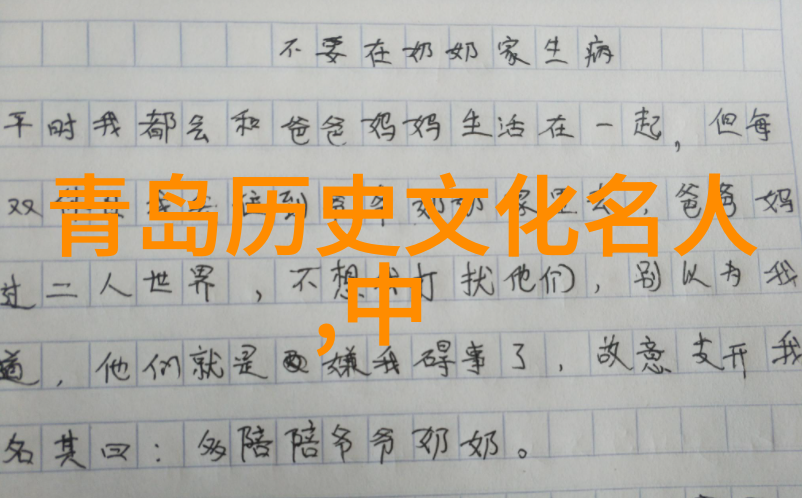 不要在奶奶家生病
平时我都会和爸爸妈妈生活在一起，但每
双到爷爷奶奶家里去，爸爸妈
青岛历史文化名人
过二人世界，不想打扰他们，别以为我
,中
道，他们就是嫌我碍事了，故意支开我
名其曰：多陪陪爷爷奶奶。